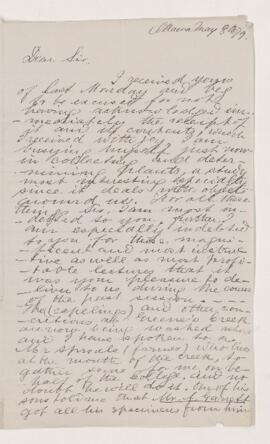 Ottawa May 8th/79.
Dear Sir.
I received yours
of last Monday and beg
to be excused for not
having acknowledged im-
mediately the receipt of
it and its contents, which
I received with it. I am
busying myself just now
in collecting and deter-
mining plants, a study
most interesting especially
since it deals with objects
around us. For all these
things sir, I am most in-
debted to you, further, I
am especially indebted
to you for those magni-
ficent and most instruc-
tive as well as most profi-
table lectures that it
was your pleasure to de-
liver to us, during the course
of the past session.
The (capelins) and other con-
cretions, at Greene's Creek
are now being washed ashore
and I have spoken to a
Mr Sproule (farmer) who lives
at the mouth of the Creek, to
gather some for me on be-
half of the College, and no
doubt he will do it. One of his
sons told me that Mr J. Garrett
got all his specimens from him